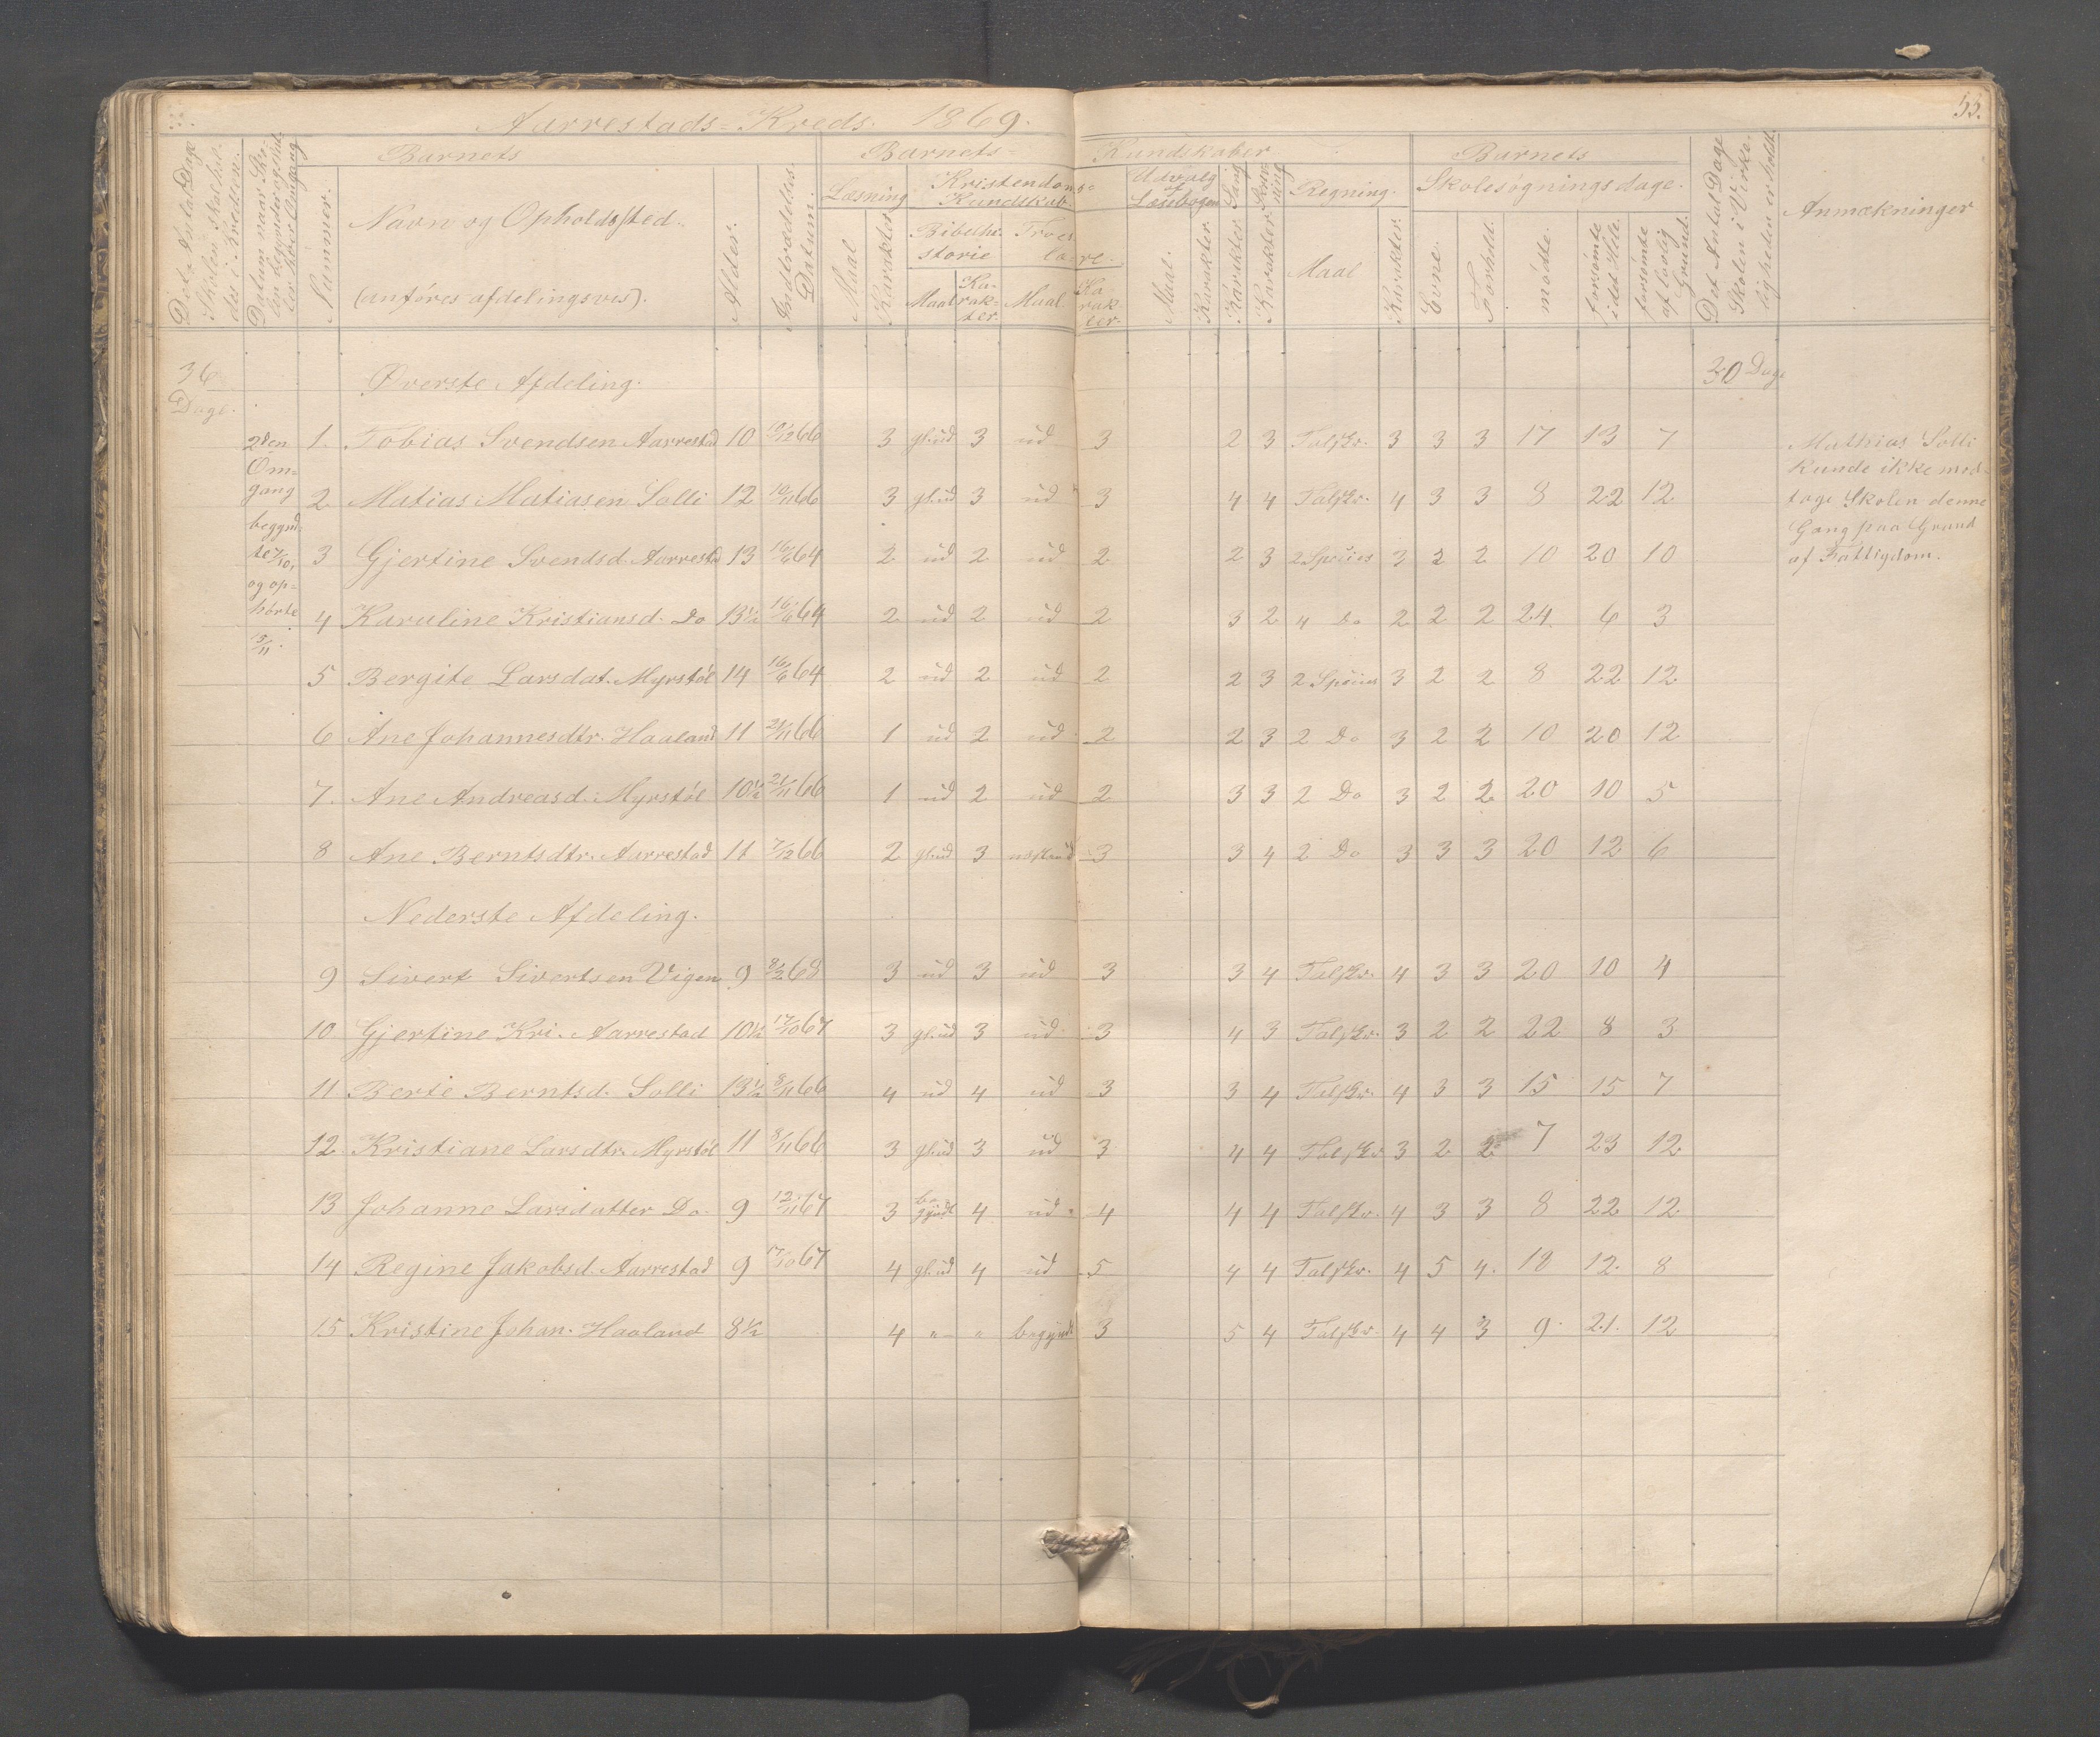 Aarrestads=Kreds. 1869.
53.
Det Antal Dage Skolen skal holdes i Kredsen.
Datum naar Skolen begyndte og slut
Nummer.
Barnets
Navn og Opholdssted.
(anføres afdelingsvis).
Alder.
Indtrædelses Datum.
Barnets= Kundskaber
Læsning
Maal
Karakter
Kristendoms= Kundskab
Bibelhistorie
Maal
Karakter.
Troeslære.
Maal
Karakter.
Udvalg af Læsebogen
Maal.
Karakter.
Sang
Karakter
Skrivning
Karakter
Regning.
Maal
Karakter.
Barnets
Skolesøgningsdage.
Evne.
Forhold.
mødte.
forsømte i det Hele.
forsømte af lovlig Grund.
Det Antal Dage Skolen i Virkeligheden er holdt.
Anmækninger
36 Dage.
Øverste Afdeling.
30 Dage
2den Om=gang begynd=te 7/10, og op=hørte 13/11.
1. Tobias Svendsen Aarrestad 10 10/12 66 3 gl.ud 3 ud 3 2 3 Talskr. 3 3 3 17 13 7
2 Matias Matiasen Solli 12 10/11 66 3 gl.ud 3 ud 3 4 4 Talskr. 4 3 3 8 22 12
3 Gjertine Svendsd. Aarrestad 13 16/6 64 2 ud 2 ud 2 2 3 2 Species 3 2 2 10 20 10
4 Karuline Kristiansd. Do 13½ 16/6 64 2 ud 2 ud 2 3 2 4 Do 2 2 2 24 6 3
5 Bergite Larsdat. Myrstøl 14 16/6 64 2 ud 2 ud 2 2 3 2 Species 3 2 2 8 22 12
6 Ane Johannesdtr. Haaland 11 21/11 66 1 ud 2 ud 2 2 3 2 Do 3 2 2 10 20 12
7. Ane Andreasd. Myrstøl 10½ 21/11 66 1 ud 2 ud 2 3 3 2 Do 3 2 2 20 10 5
8 Ane Berntsdtr. Aarrestad 11 7/12 66 2 gl.ud 3 næstend 3 3 4 2 Do 3 3 3 20 12 6
Nederste Afdeling.
9 Sivert Sivertsen Vigen 9 8/2 68 3 ud 3 ud 3 3 4 Talskr. 4 3 3 20 10 4
10 Gjertine Kri. Aarrestad 10½ 17/10 67 3 gl.ud 3 ud 3 4 3 Talskr. 3 2 2 22 8 3
11 Berte Berntsd. Solli 13½ 8/11 66 4 ud 4 ud 3 3 4 Talskr. 4 3 3 15 15 7
12 Kristiane Larsdtr. Myrstøl 11 8/11 66 3 gl.ud 3 ud 3 4 4 Talskr 3 2 2 7 23 12
13 Johanne Larsdatter Do. 9 12/11 67 3 begyndt 4 ud 4 4 4 Talskr. 4 3 3 8 22 12
14 Regine Jakobsd. Aarrestad 9 17/10 67 4 gl.ud 4 ud 5 4 4 Talskr. 4 5 4. 18 12. 8
15 Kristine Johan. Haaland 8½ 4 " " begyndt 3 5 4 Talskr. 4 4 3 9. 21. 12
Mathias Solli
kunde ikke mod=
tage Skolen denne
Gang paa Grund
af Fattigdom.